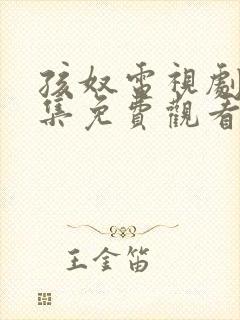 孩奴電視劇
集免費觀看
王金笛